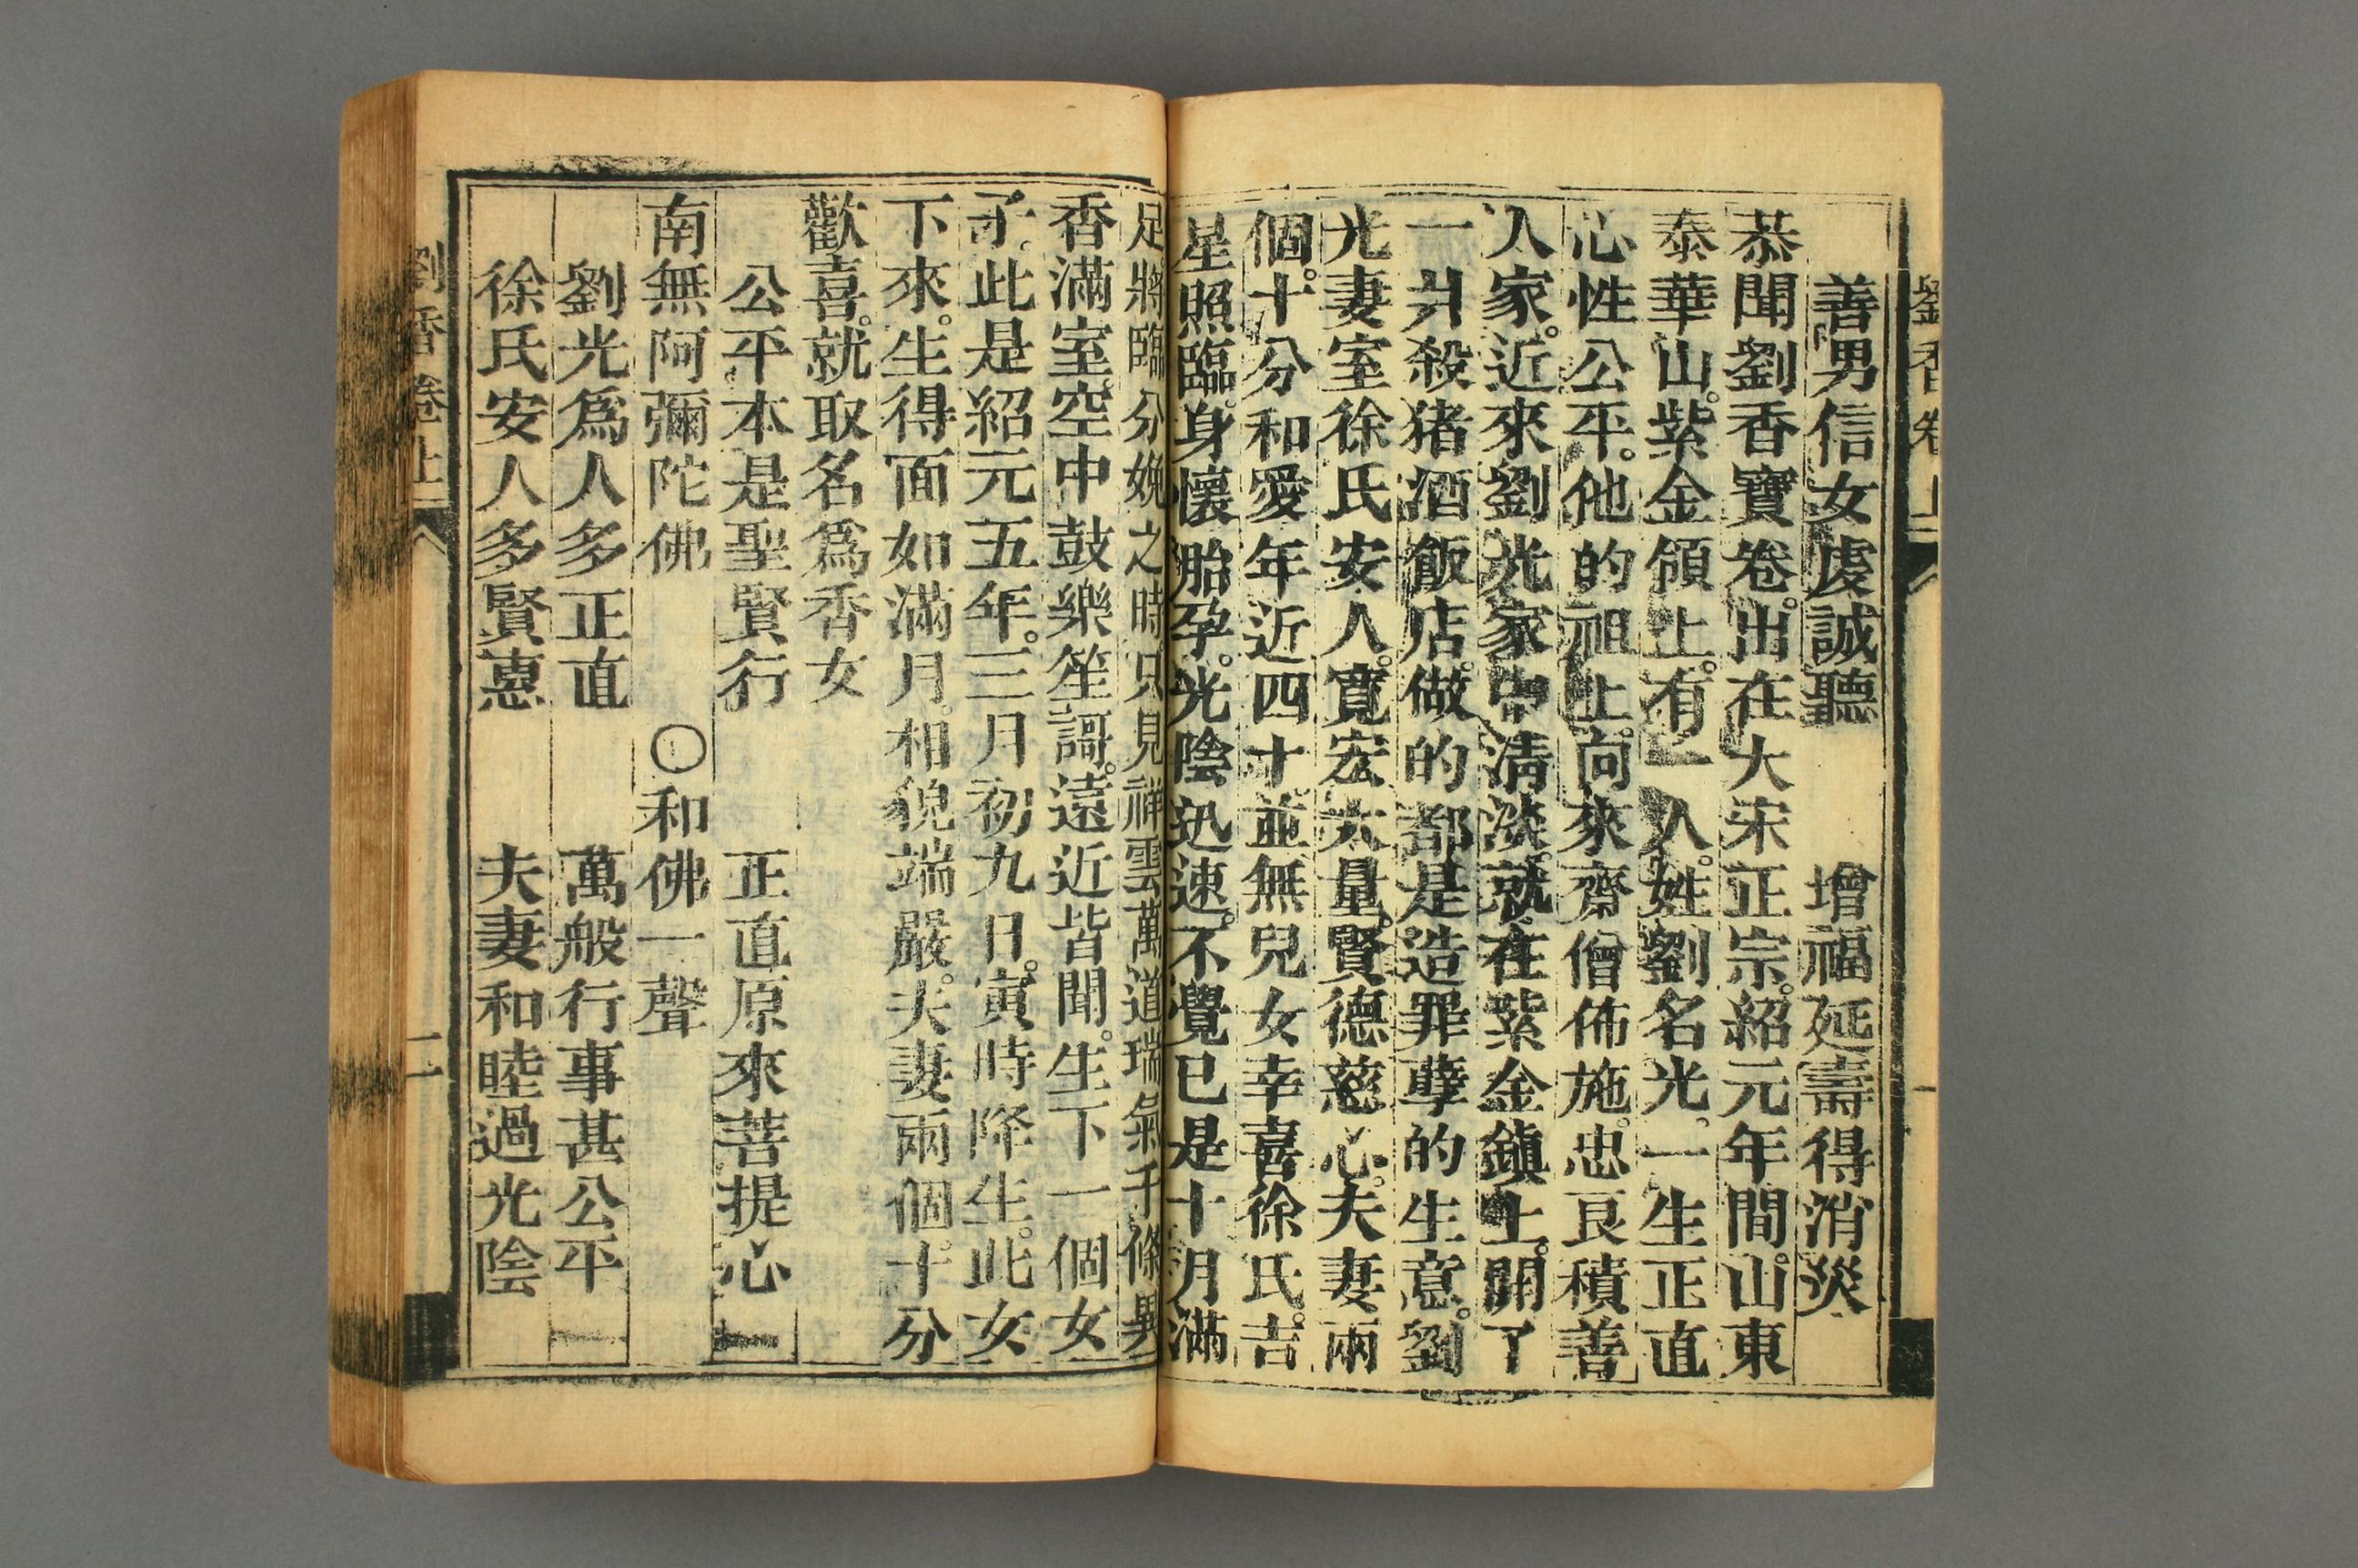 劉香卷上
一
善男信女虔誠聽　增福延壽得消災
恭聞劉香寶卷。出在大宋正宗。紹元年間。山東
泰華山。紫金領上。有一人。姓劉名光。一生正直
心性公平。他的祖上。向來齋僧佈施。忠良積善
人家。近來劉光家中清淡。就在紫金鎮上。開了
一爿殺猪酒飯店。做的都是造罪孽的生意。劉
光妻室徐氏安人。寬宏大量。賢德慈心。夫妻兩
個。十分和愛年近四十。並無兒女幸喜徐氏。吉
星照臨。身懷胎孕。光陰迅速。不覺已是十月滿
足將臨分娩之時只見祥雲萬道瑞氣千條異
香滿室。空中鼓樂笙謌。遠近皆聞。生下一個女
子。此是紹元五年。三月初九日。寅時降生。此女
下來。生得面如滿月。相貌端嚴。夫妻兩個。十分
歡喜。就取名爲香女
公平本是聖賢行　正直原來菩提心
南無阿彌陀佛　〇和佛一聲
劉光爲人多正直　萬般行事甚公平
徐氏安人多賢惪　夫妻和睦過光陰
劉香卷上
二